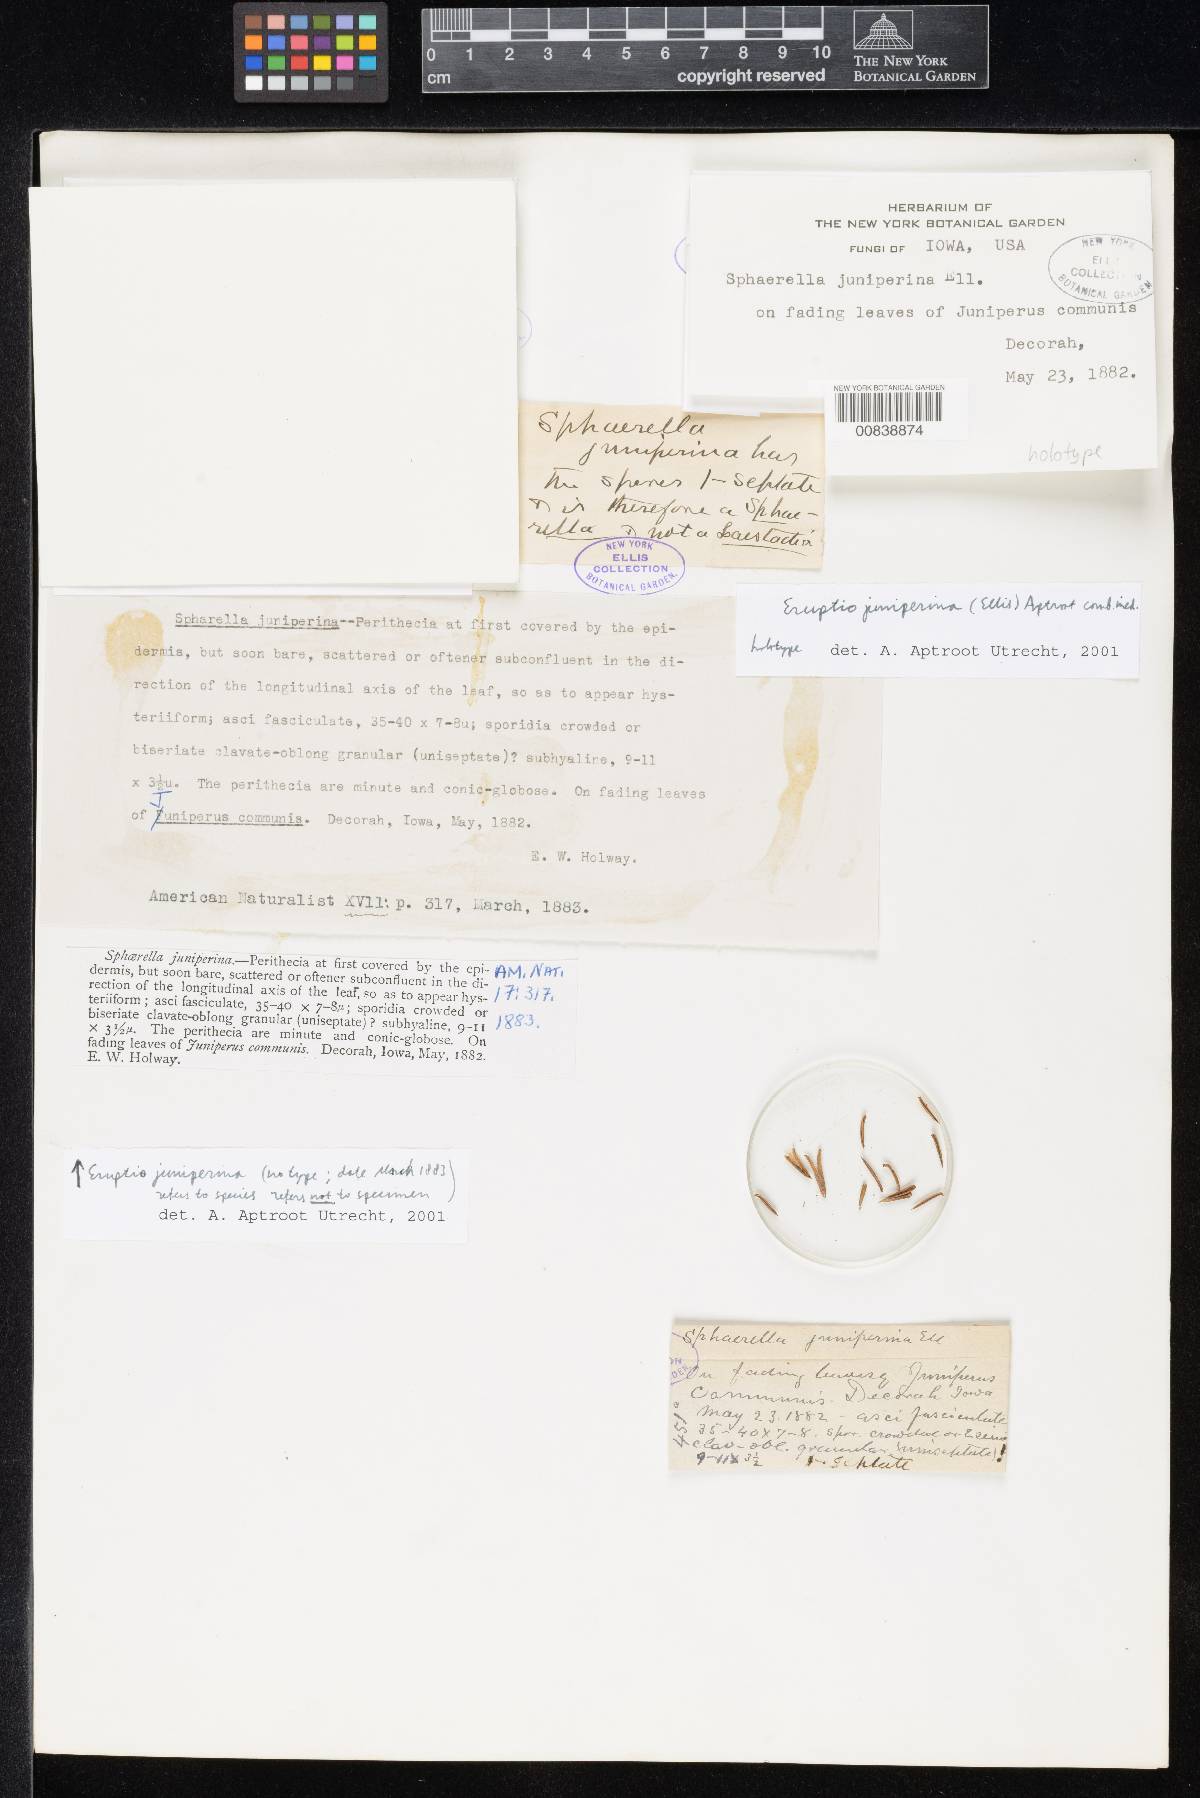 0 1 2 3 4 5 6 7 8 9 10
cm
copyright reserved
THE NEW YORK
BOTANICAL GARDEN
HERBARIUM OF
THE NEW YORK BOTANICAL GARDEN
FUNGI OF IOWA, USA
Sphaerella juniperina Ell.
on fading leaves of Juniperus communis
Decorah,
May 23, 1882.
NEW YORK
ELLIS
COLLECTION
BOTANICAL GARDEN
NEW YORK BOTANICAL GARDEN
00838874
holotype
Sphaerella
juniperina has
the spores 1-septate
& is therefore a Sphae-
rella & not a Laestadia
NEW YORK
ELLIS
COLLECTION
BOTANICAL GARDEN.
Eruptio juniperina (Ellis) Aptroot comb. ined.
holotype det. A. Aptroot Utrecht, 2001
Spharella juniperina--Perithecia at first covered by the epi-
dermis, but soon bare, scattered or oftener subconfluent in the di-
rection of the longitudinal axis of the leaf, so as to appear hys-
teriiform; asci fasciculate, 35-40 x 7-8u; sporidia crowded or
biseriate clavate-oblong granular (uniseptate)? subhyaline, 9-11
x 3½u. The perithecia are minute and conic-globose. On fading leaves
of Juniperus communis. Decorah, Iowa, May, 1882.
E. W. Holway.
American Naturalist XVll: p. 317, March, 1883.
Sphærella juniperina.—Perithecia at first covered by the epi-
dermis, but soon bare, scattered or oftener subconfluent in the di-
rection of the longitudinal axis of the leaf, so as to appear hys-
teriiform; asci fasciculate, 35-40 × 7-8µ; sporidia crowded or
biseriate clavate-oblong granular (uniseptate)? subhyaline, 9-11
× 3½µ. The perithecia are minute and conic-globose. On
fading leaves of Juniperus communis. Decorah, Iowa, May, 1882.
E. W. Holway.
AM. NAT.
17: 317.
1883.
↑ Eruptio juniperina (no type; date March 1883)
refers to species refers not to specimen)
det. A. Aptroot Utrecht, 2001
Sphaerella juniperina Ell
On fading leaves of Juniperus
Communis. Decorah Iowa
May 23. 1882 - asci fasciculate
35-40 x 7-8. spor. crowded or
clav-obl. granular (uniseptate)!
9-11 x 3½ 1-septate
451a